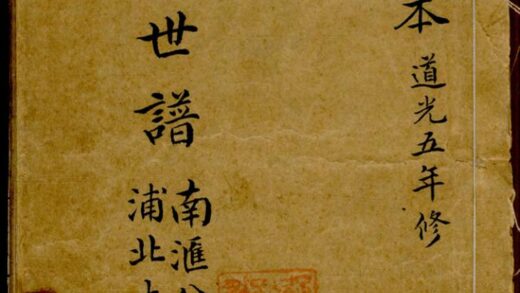 本 道光五年修
世譜
南滙
浦北